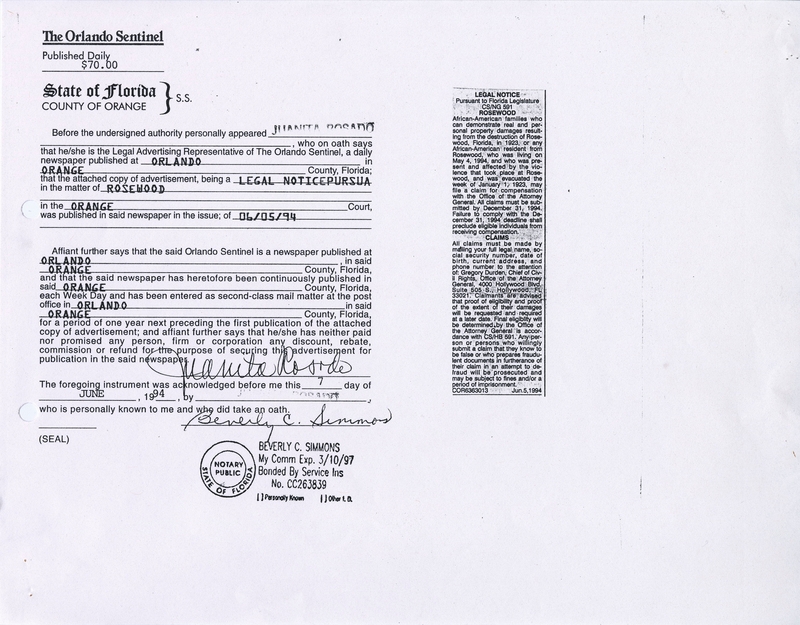 The Orlando Sentinel
Published Daily
$70.00
State of Florida
COUNTY OF ORANGE
} S.S.
Before the undersigned authority personally appeared JUANITA ROSADO
, who on oath says
that he/she is the Legal Advertising Representative of The Orlando Sentinel, a daily
newspaper published at ORLANDO in
ORANGE County, Florida;
that the attached copy of advertisement, being a LEGAL NOTICEPURSUA
in the matter of ROSEWOOD
in the ORANGE Court,
was published in said newspaper in the issue; of 06/05/94
Affiant further says that the said Orlando Sentinel is a newspaper published at
ORLANDO , in said
ORANGE County, Florida,
and that the said newspaper has heretofore been continuously published in
said ORANGE County, Florida,
each Week Day and has been entered as second-class mail matter at the post
office in ORLANDO in said
ORANGE County, Florida,
for a period of one year next preceding the first publication of the attached
copy of advertisement; and affiant further says that he/she has neither paid
nor promised any person, firm or corporation any discount, rebate,
commission or refund for the purpose of securing this advertisement for
publication in the said newspaper.
Juanita Rosado
The foregoing instrument was acknowledged before me this 7 day of
JUNE , 1994, by
who is personally known to me and who did take an oath.
Beverly C. Simmons
(SEAL)
NOTARY PUBLIC
STATE OF FLORIDA
BEVERLY C. SIMMONS
My Comm Exp. 3/10/97
Bonded By Service Ins
No. CC263839
[ ] Personally Known [ ] Other I. D.
LEGAL NOTICE
Pursuant to Florida Legislature
CS/NG 591
ROSEWOOD
African-American families who
can demonstrate real and per-
sonal property damages result-
ing from the destruction of Rose-
wood, Florida, in 1923, or any
African-American resident from
Rosewood, who was living on
May 4, 1994, and who was pre-
sent and affected by the vio-
lence that took place at Rose-
wood, and was evacuated the
week of January 1, 1923, may
file a claim for compensation
with the Office of the Attorney
General. All claims must be sub-
mitted by December 31, 1994.
Failure to comply with the De-
cember 31, 1994 deadline shall
preclude eligible individuals from
receiving compensation.
CLAIMS
All claims must be made by
mailing your full legal name, so-
cial security number, date of
birth, current address, and
phone number to the attention
of: Gregory Durden, Chief of Civ-
il Rights, Office of the Attorney
General, 4000 Hollywood Blvd.,
Suite 505 S., Hollywood, FL
33021. Claimants are advised
that proof of eligibility and proof
of the extent of their damages
will be requested and required
at a later date. Final eligibility will
be determined by the Office of
the Attorney General in accor-
dance with CS/HB 591. Any per-
son or persons who willingly
submit a claim that they know to
be false or who prepares fraudu-
lent documents in furtherance of
their claim in an attempt to de-
fraud will be prosecuted and
may be subject to fines and/or a
period of imprisonment.
COR6363013 Jun.5,1994